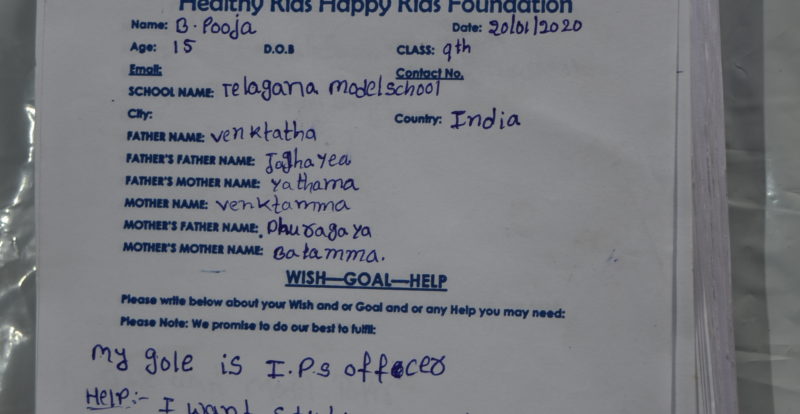 Healthy Kids Happy Kids Foundation
Name: B. Pooja Date: 20/01/2020
Age: 15 D.O.B CLASS: 9th
Email: Contact No.
SCHOOL NAME: Telagana model school
City: Country: India
FATHER NAME: venktatha
FATHER'S FATHER NAME: Jaghayea
FATHER'S MOTHER NAME: yathama
MOTHER NAME: venktamma
MOTHER'S FATHER NAME: Dhuragaya
MOTHER'S MOTHER NAME: Batamma.
WISH—GOAL—HELP
Please write below about your Wish and or Goal and or any Help you may need:
Please Note: We promise to do our best to fulfil:
my gole is I.P.S officer
Help:- I want